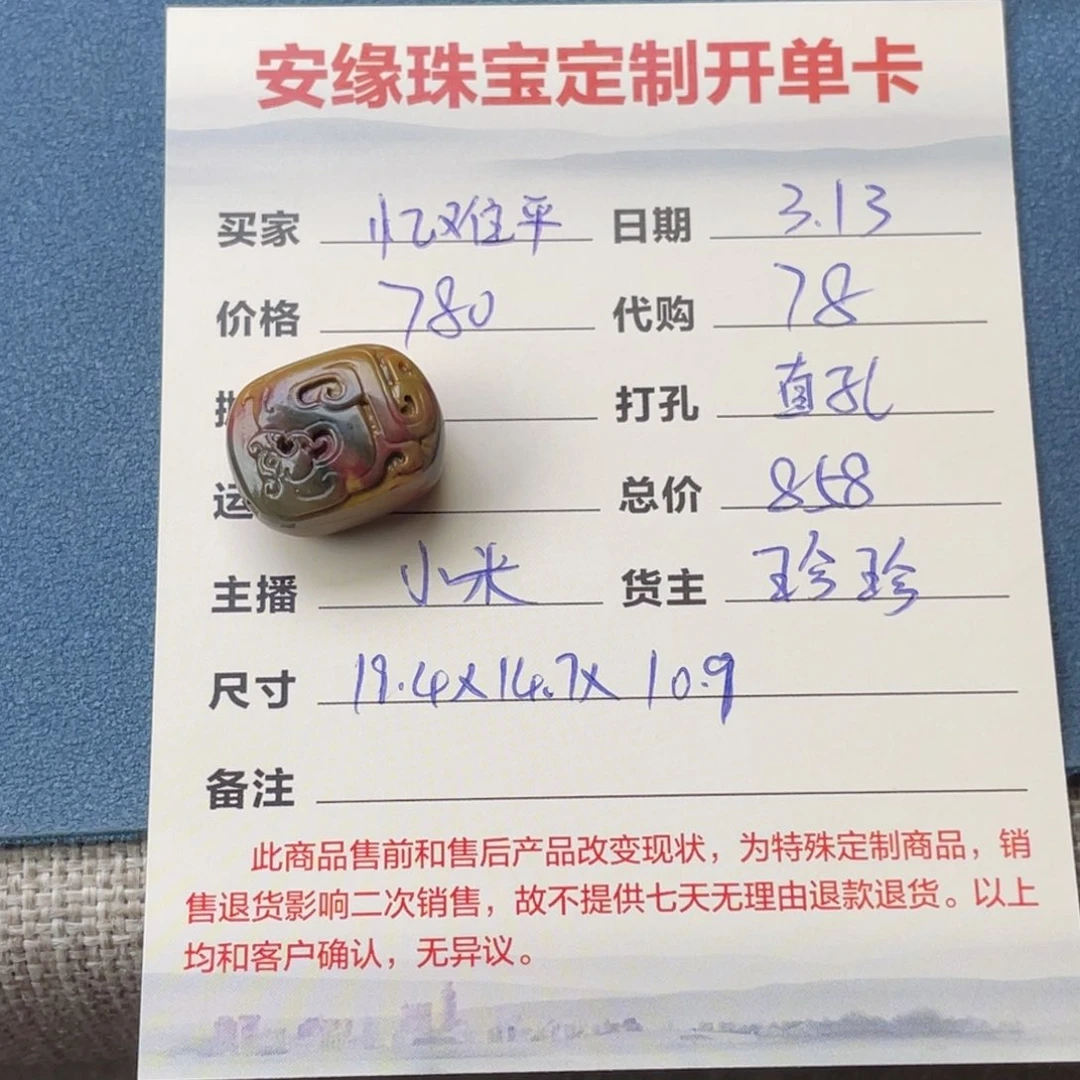 安缘珠宝定制开单卡
买家 忆难平 日期 3.13
价格 780 代购 78
打孔 直孔
运 总价 858
主播 小米 货主 珍珍
尺寸 19.4x14.7x10.9
备注
此商品售前和售后产品改变现状，为特殊定制商品，销
售退货影响二次销售，故不提供七天无理由退款退货。以上
均和客户确认，无异议。